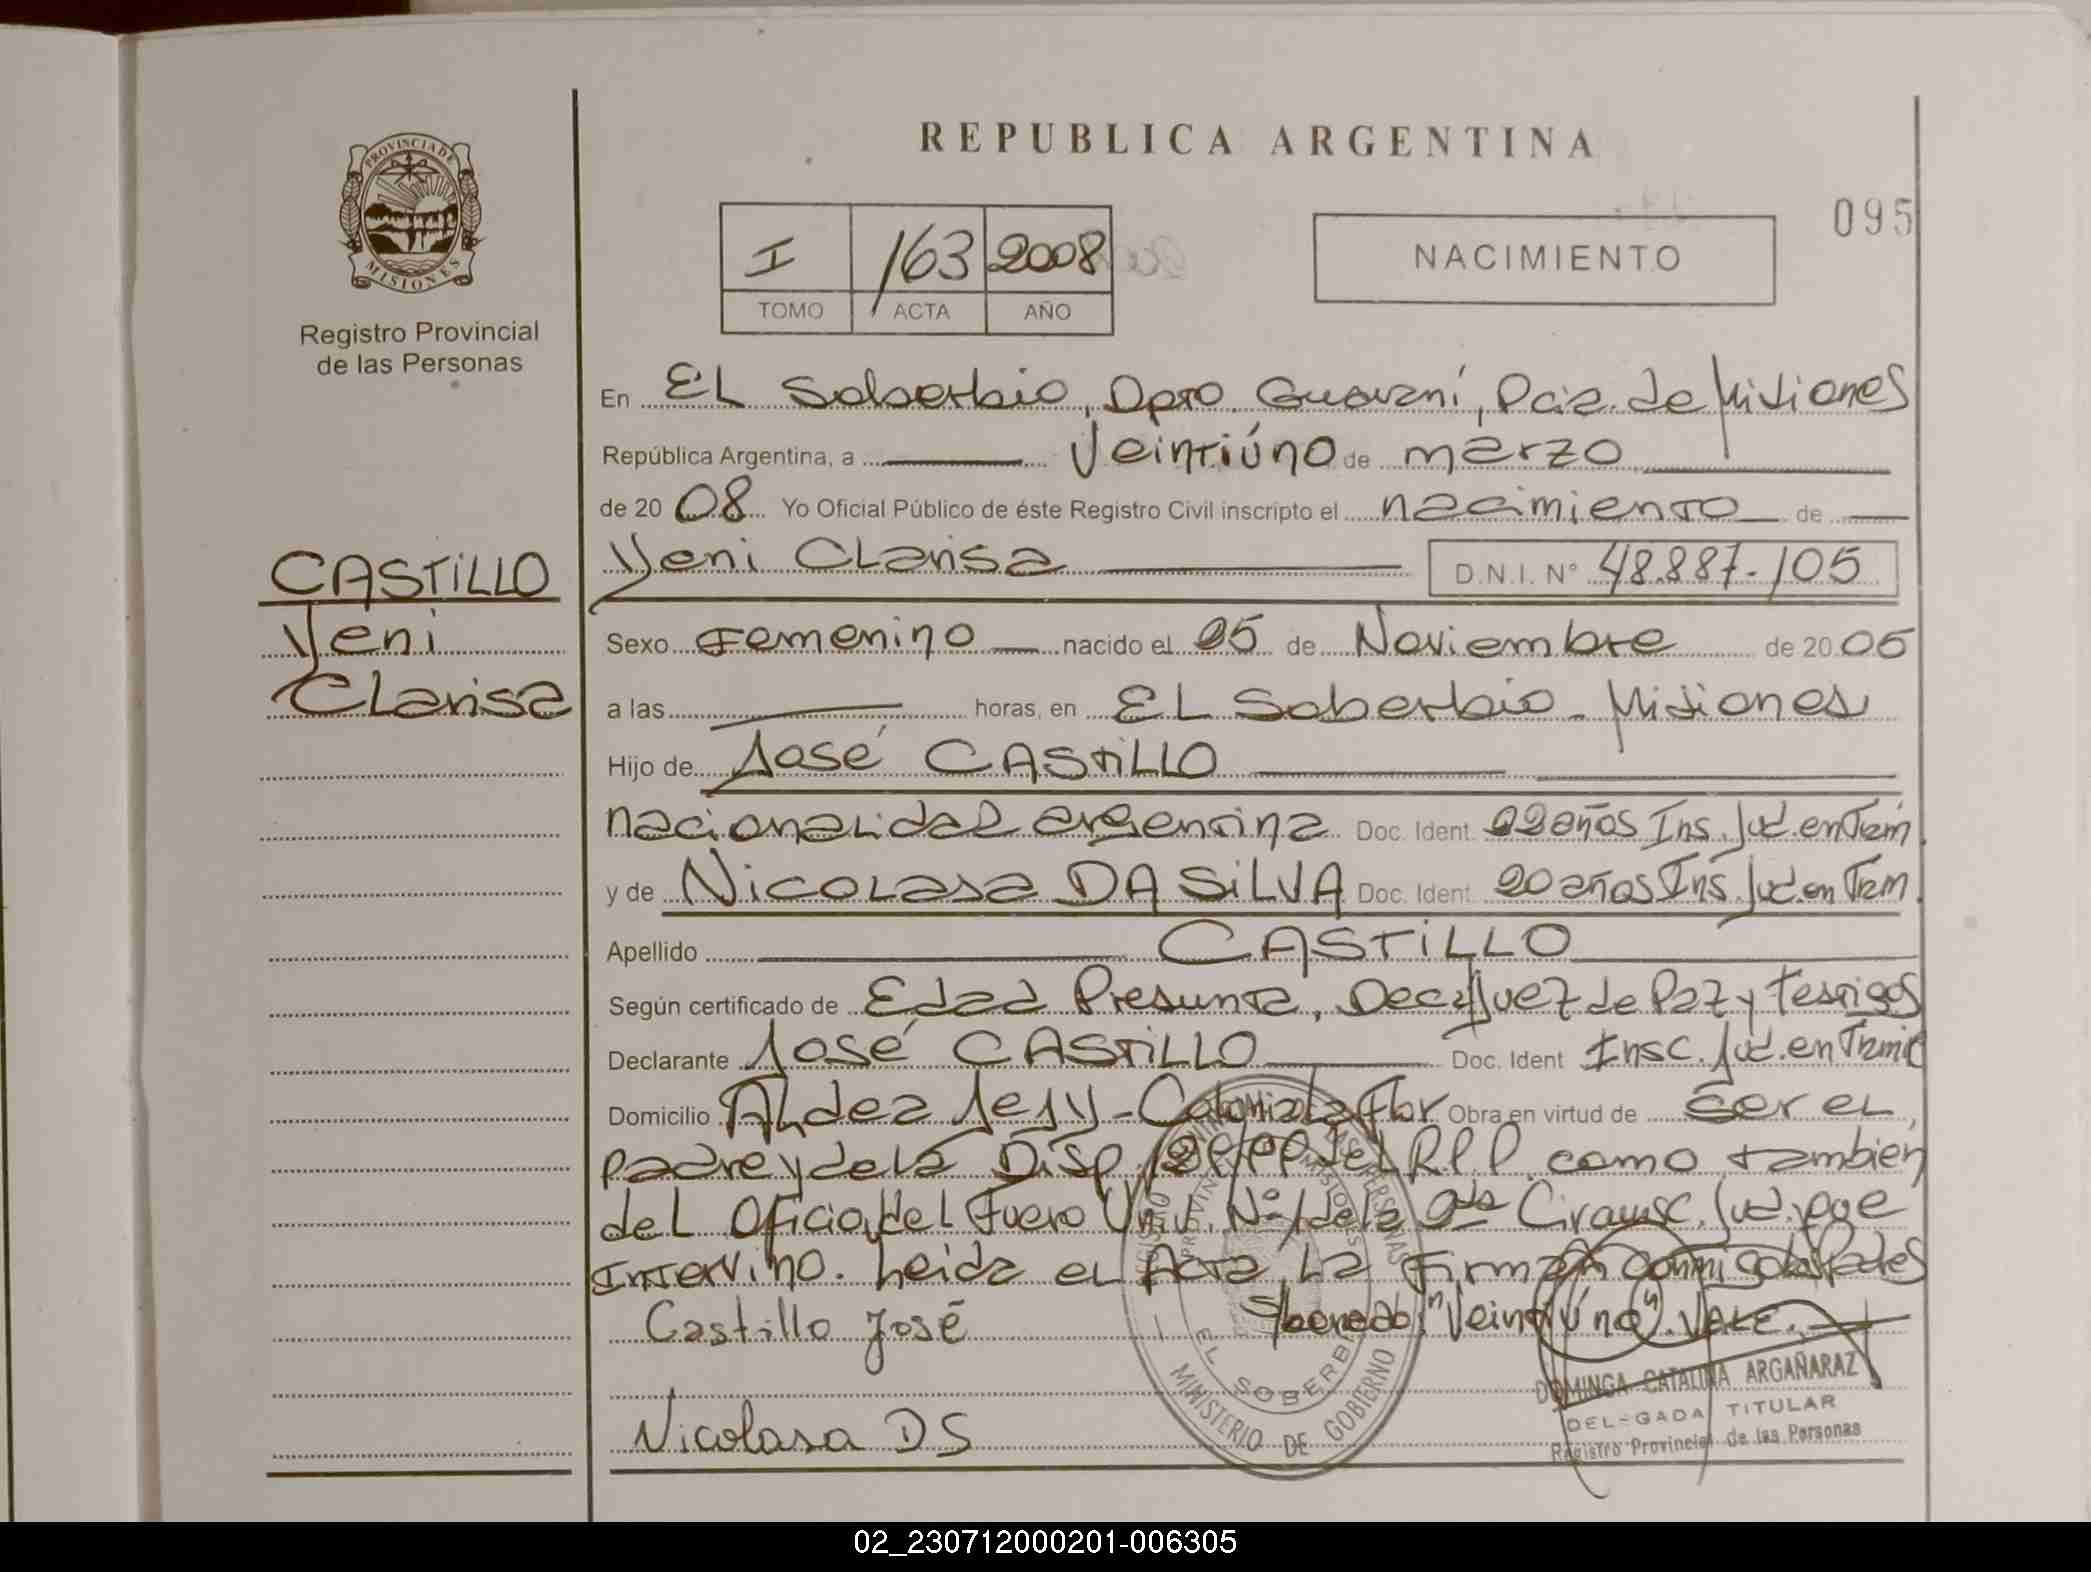 REPUBLICA ARGENTINA
095
PROVINCIA DE
MISIONES
I 163 2008
TOMO ACTA AÑO
NACIMIENTO
Registro Provincial
de las Personas
En EL Soberbio, Dpto. Guaraní, Pcia. de Misiones
República Argentina, a Veintiúno de marzo
de 20 08 Yo Oficial Público de éste Registro Civil inscripto el nacimiento de
CASTILLO
Yeni
Clarisa
Yeni Clarisa D.N.I. N° 48.887.105
Sexo Femenino nacido el 25 de Noviembre de 20 05
a las horas, en EL Soberbio - Misiones
Hijo de José CASTILLO
nacionalidad argentina Doc. Ident. 22 años Ins. Jud. en Trám
y de Nicolasa DA SILVA Doc. Ident. 20 años Ins. Jud. en Trám.
Apellido CASTILLO
Según certificado de Edad Presunta, Juez de Paz y testigos
Declarante José CASTILLO Doc. Ident Insc. Jud. en Trámi
Domicilio Aldea Jejy - Colonia la Flor Obra en virtud de ser el
padre y de la Disp. del R.P.P. como tambien
del Oficio del Fuero Univ. N° 1 de la 2da Circunsc. Jud. que
Intervino. Leida el Acta, La Firman conmigo los Padres
Castillo José
"Veintiúno". VALE.
Nicolasa DS
EL SOBERBIO
MINISTERIO DE GOBIERNO
DOMINGA CATALINA ARGAÑARAZ
DELEGADA TITULAR
Registro Provincial de las Personas
02_230712000201-006305